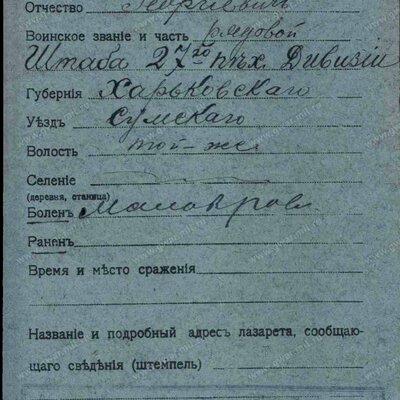 Отчество Георгіевичъ
Воинское званіе и часть рядовой
Штаба 27го пѣх. Дивизіи
Губернія Харьковскаго
Уѣздъ Сумскаго
Волость той-же
Селеніе
(деревня, станица)
Боленъ Малокров
Раненъ
Время и мѣсто сраженія
Названіе и подробный адресъ лазарета, сообщаю-
щаго свѣдѣнія (штемпель)